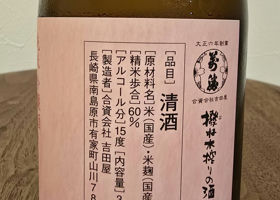 大正六年創業
萬勝
合資会社吉田屋
撥ね木搾りの酒
[品目] 清酒
[原材料名]米(国産)・米麹(国産
精米歩合]60%
[アルコール分]15度[内容量]3
[製造者]合資会社 吉田屋
長崎県南島原市有家町山川78